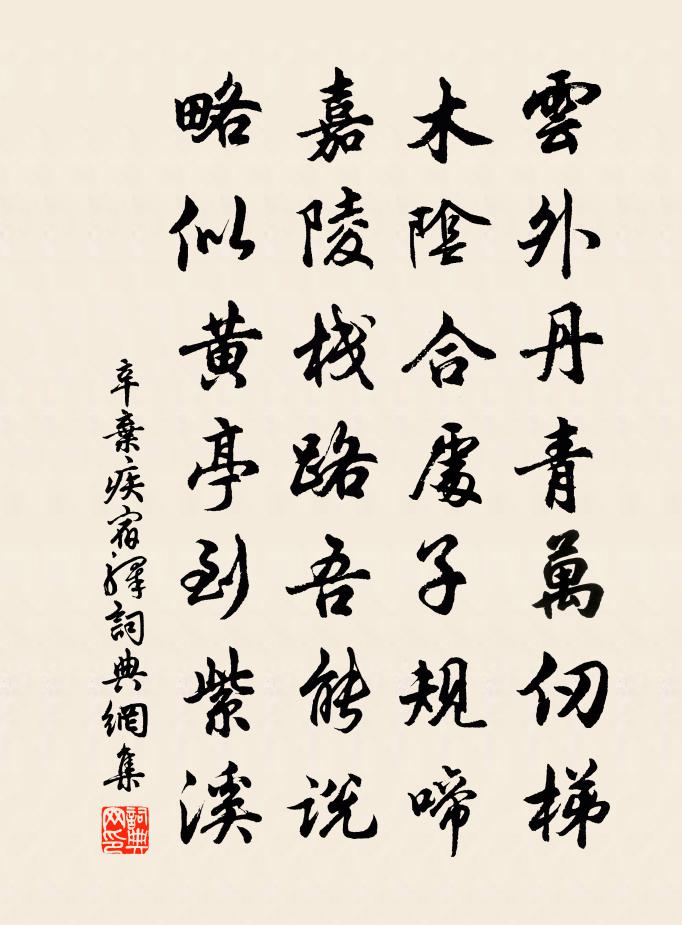 雲外丹青萬仞梯
木陰合處子規啼
嘉陵棧路吾能說
略似黃亭到紫溪
辛棄疾宿驛詞典網集
詞典網印